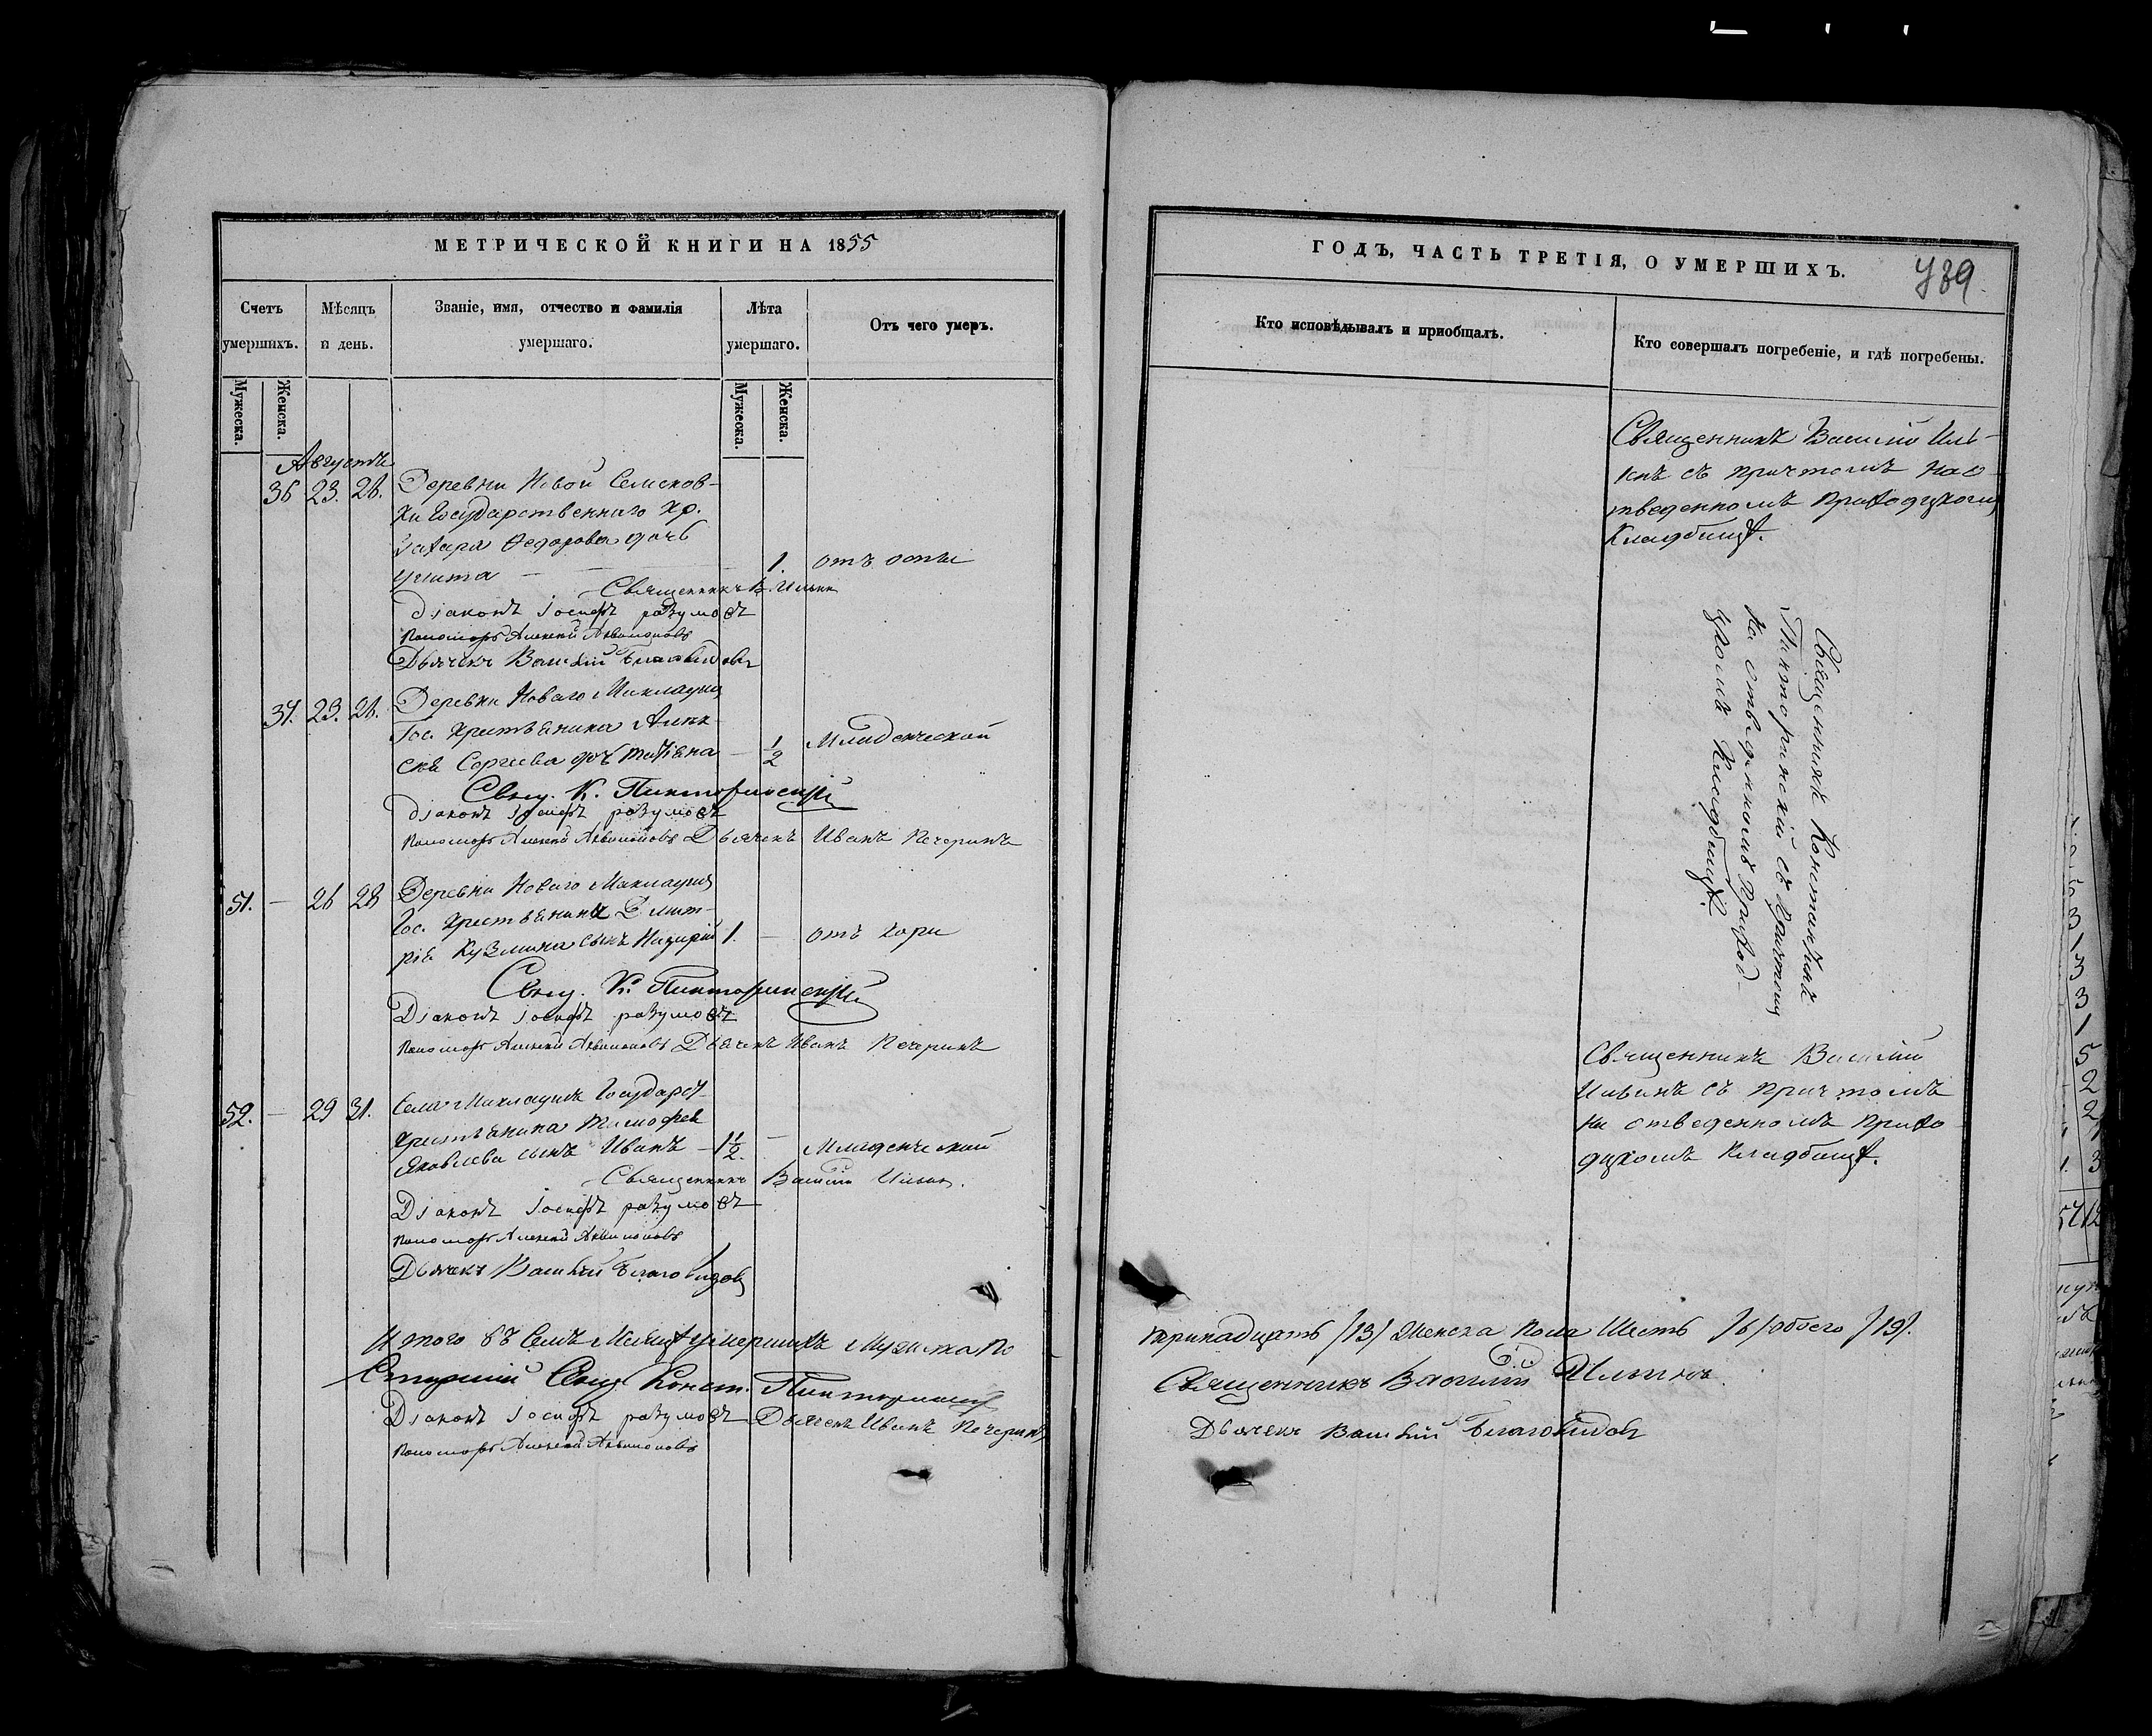 МЕТРИЧЕСКОЙ КНИГИ НА 1855
Счетъ умершихъ.
Мѣсяцъ и день.
Званіе, имя, отчество и фамилія умершаго.
Лѣта умершаго.
Отъ чего умеръ.
Мужеска.
Женска.
Мужеска.
Женска.
Августъ
36 23. 28. Деревни Новой Семенов-
ки Государственнаго Кр.
Захара Федорова дочь
1. отъ оспы
Священникъ В. Ильин
Діаконъ Іосифъ Разумовъ
Пономарь Алексей
Дьячекъ Василий Благовидовъ
37. 23. 28. Деревни Новаго Маклауша
Гос. Крестьянина Алек-
сѣя Сергеева дочь Татіяна — 1/2 Младенческой
Свящ. К. Пикторинский
Діаконъ Іосифъ Разумовъ
Пономарь Алексей Дьячекъ Иванъ Печеринъ
51. — 26 28 Деревни Новаго Маклауша
Гос. Крестьянина Димит-
рія Кузмина сынъ Назарій 1. — отъ кори
Свящ. К. Пикторинский
Діаконъ Іосифъ Разумовъ
Пономарь Алексей Дьячекъ Иванъ Печеринъ
52. — 29 31. Села Маклауша Государст.
Крестьянина Тимофея
Яковлева сынъ Иванъ — 1 1/2. — Младенческой
Священникъ Василій Ильин.
Діаконъ Іосифъ Разумовъ
Пономарь Алексей
Дьячекъ Василий Благовидовъ
Итого въ семъ Месяцѣ умершихъ Мужеска По
Старший Свящ. Конст. Пикторинский
Діаконъ Іосифъ Разумовъ Дьячекъ Иванъ Печеринъ
Пономарь Алексей
ГОДЪ, ЧАСТЬ ТРЕТІЯ, О УМЕРШИХЪ.
739.
Кто исповѣдывалъ и приобщалъ.
Кто совершалъ погребеніе, и гдѣ погребены.
Священникъ Василий Иль-
инъ съ причтомъ на о
тведенномъ Приходскомъ
Кладбищѣ.
Священникъ Константинъ
Пикторинский съ Причтомъ
на отведенномъ Приход-
скомъ Кладбищѣ.
Священникъ Василий
Ильинъ съ Причтомъ
на отведенномъ Прихо
дскомъ Кладбищѣ.
тринадцать /13/ Женска Пола Шесть /6/ обоего /19/.
Священникъ Василий Ильинъ.
Дьячекъ Василий Благовидовъ